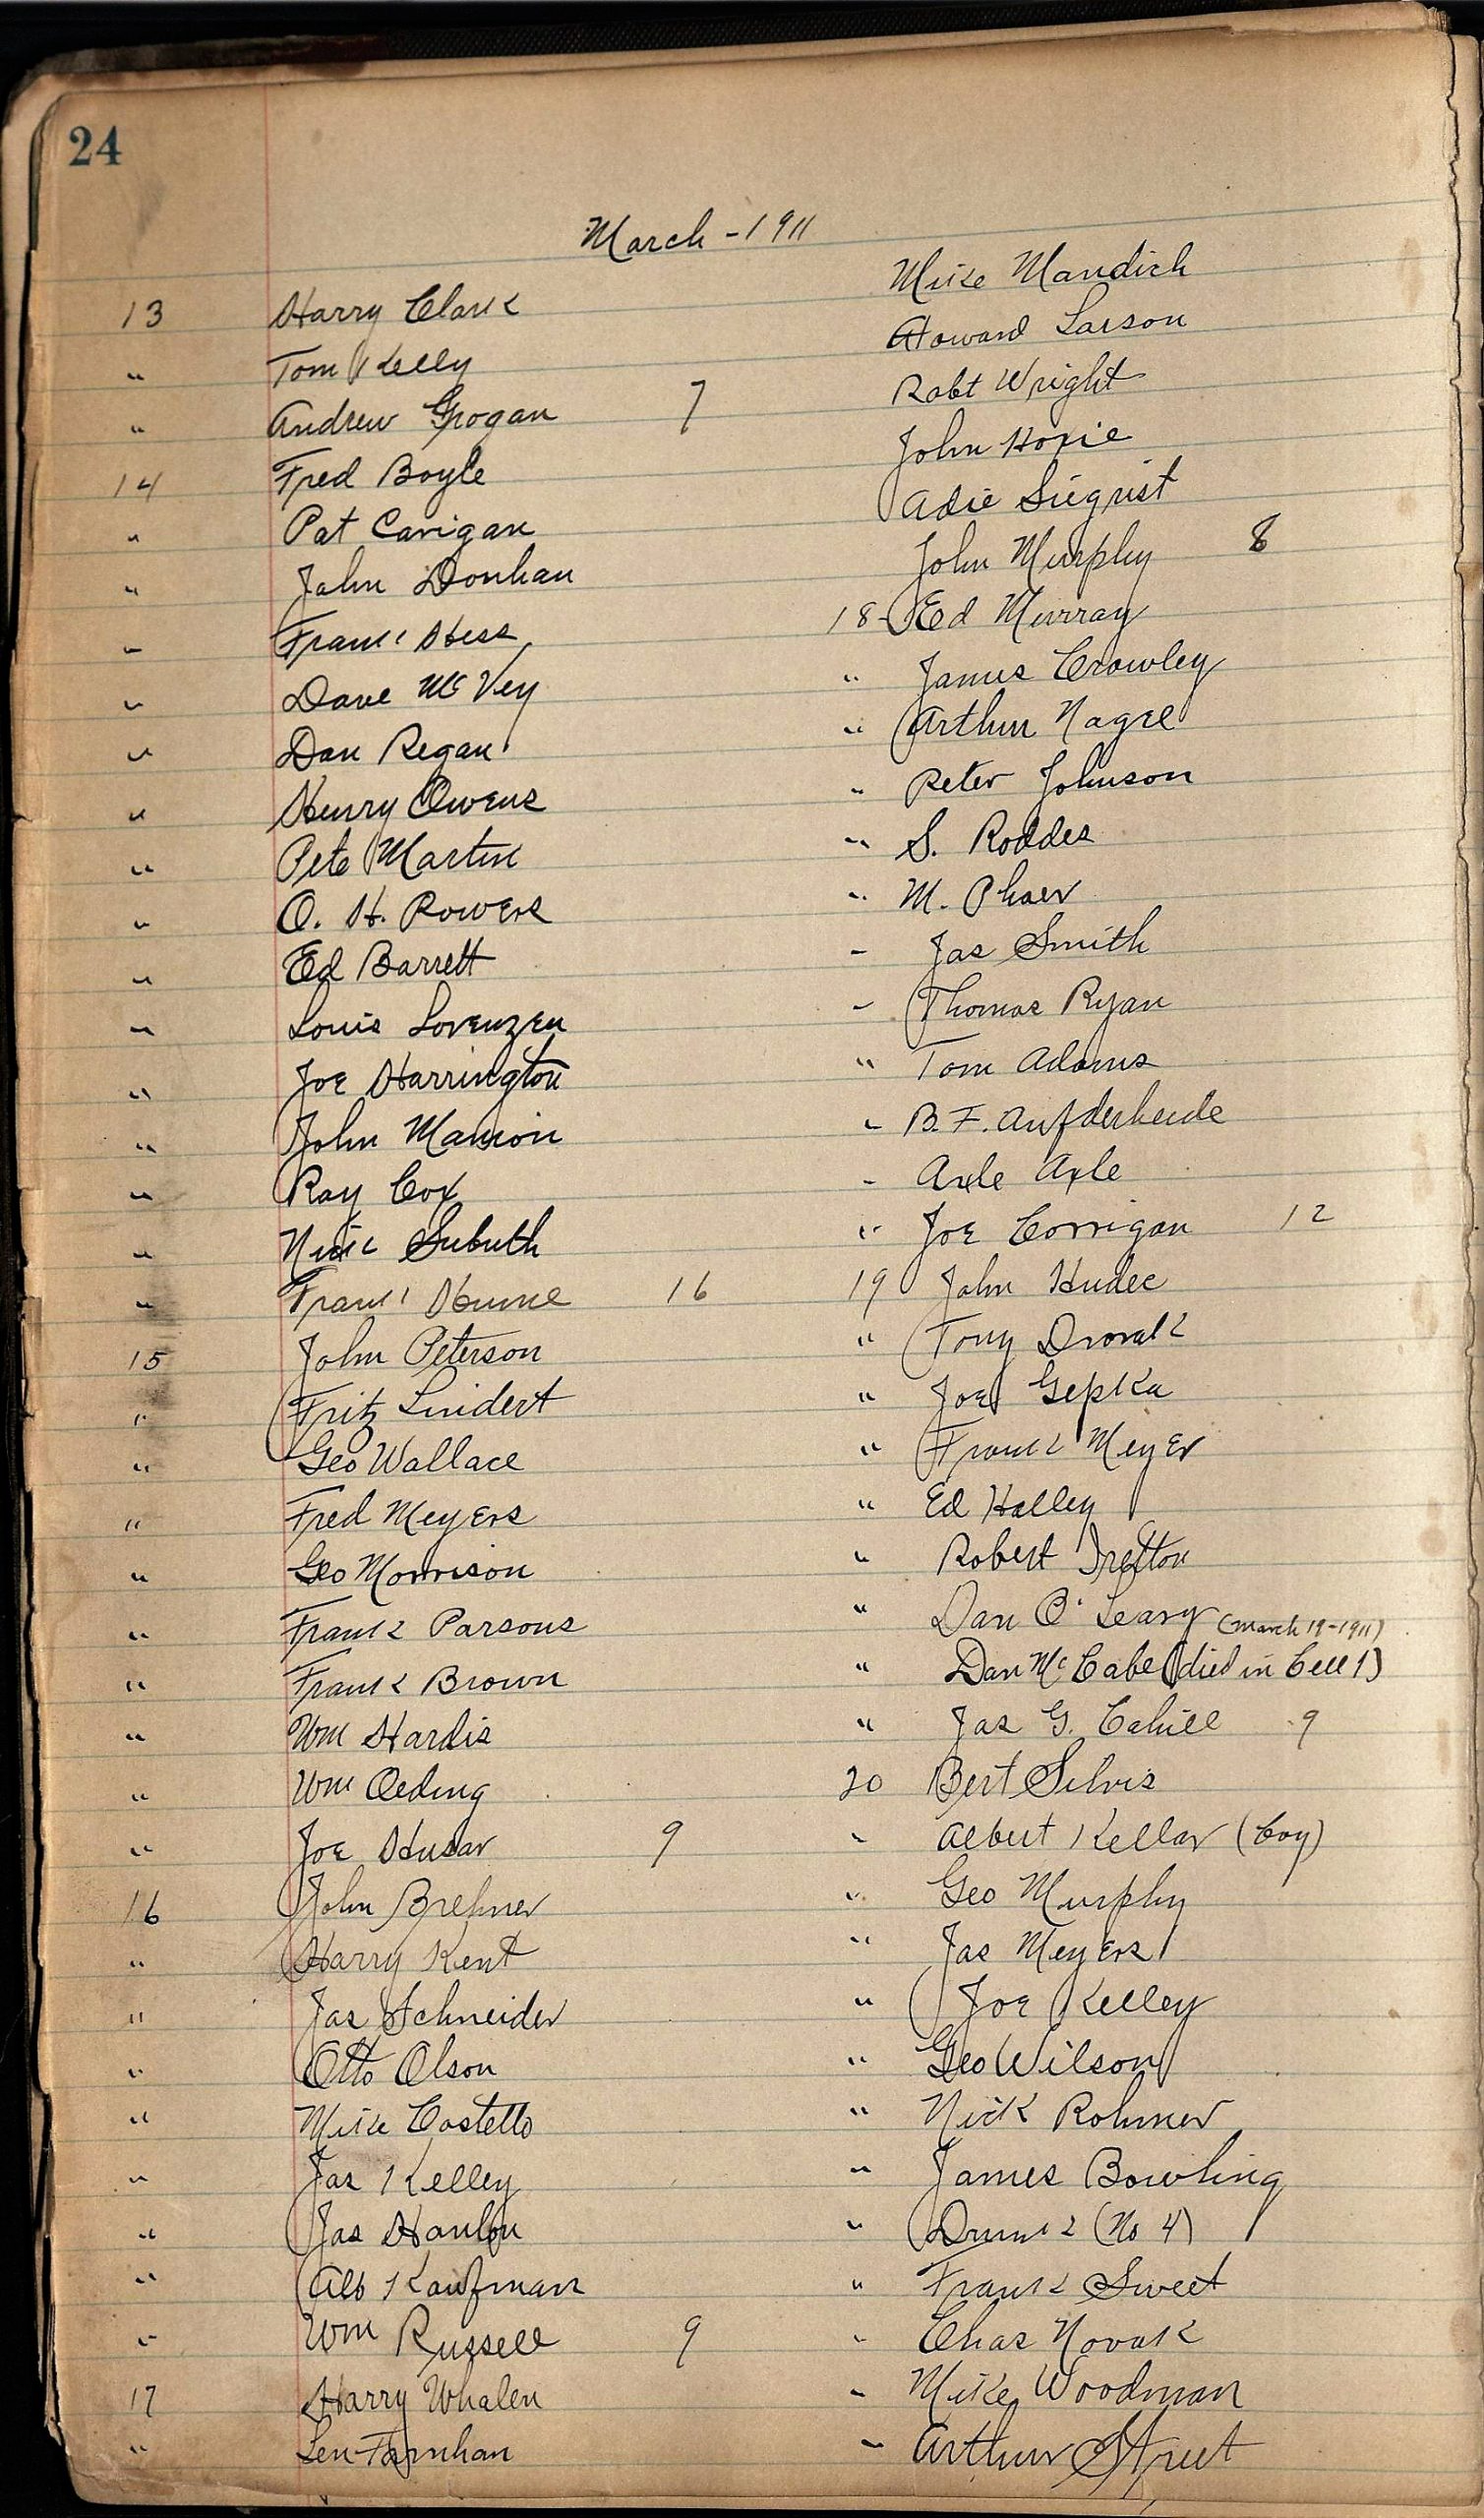 24
March - 1911
13 Harry Clark
" Tom Kelly
" Andrew Grogan 7
14 Fred Boyle
" Pat Carigan
" John Donhan
" Frank Hess
" Dave McVey
" Dan Regan
" Henry Owens
" Pete Martin
" O. H. Rowers
" Ed Barrett
" Louis Lorenzen
" Joe Harrington
" John Manion
" Ray Cox
" Nick Subuth
" Frank Hume 16
15 John Peterson
" Fritz Lindert
" Geo Wallace
" Fred Meyers
" Geo Morrison
" Frank Parsons
" Frank Brown
" Wm Hardis
" Wm Oeding
" Joe Husar 9
16 John Brehner
" Harry Kent
" Jas Schneider
" Otto Olson
" Mike Costello
" Jas Kelley
" Jas Hanlon
" Alb Kaufman
" Wm Russell 9
17 Harry Whalen
" Len Farnhan
Mike Mandich
Howard Larson
Robt Wright
John Hoxie
Adie Siegrist
John Murphy 8
18- Ed Murray
" James Crowley
" Arthur Nagel
" Peter Johnson
" S. Roddes
" M. Phaer
" Jas Smith
" Thomas Ryan
" Tom Adams
" B. F. Aufderheide
" Axle Axle
" Joe Corrigan 12
19 John Hudec
" Tony Dvorak
" Joe Gepka
" Frank Meyer
" Ed Halley
" Robert
" Dan O'Leary (March 19-1911)
" Dan McCabe (died in Cell 1)
" Jas G. Cahill 9
20 Bert Silvis
" Albert Kellar (boy)
" Geo Murphy
" Jas Meyers
" Joe Kelley
" Geo Wilson
" Nick Rohmer
" James Bowling
" Drunk (No 4)
" Frank Sweet
" Chas Novak
" Mike Woodman
" Arthur Street